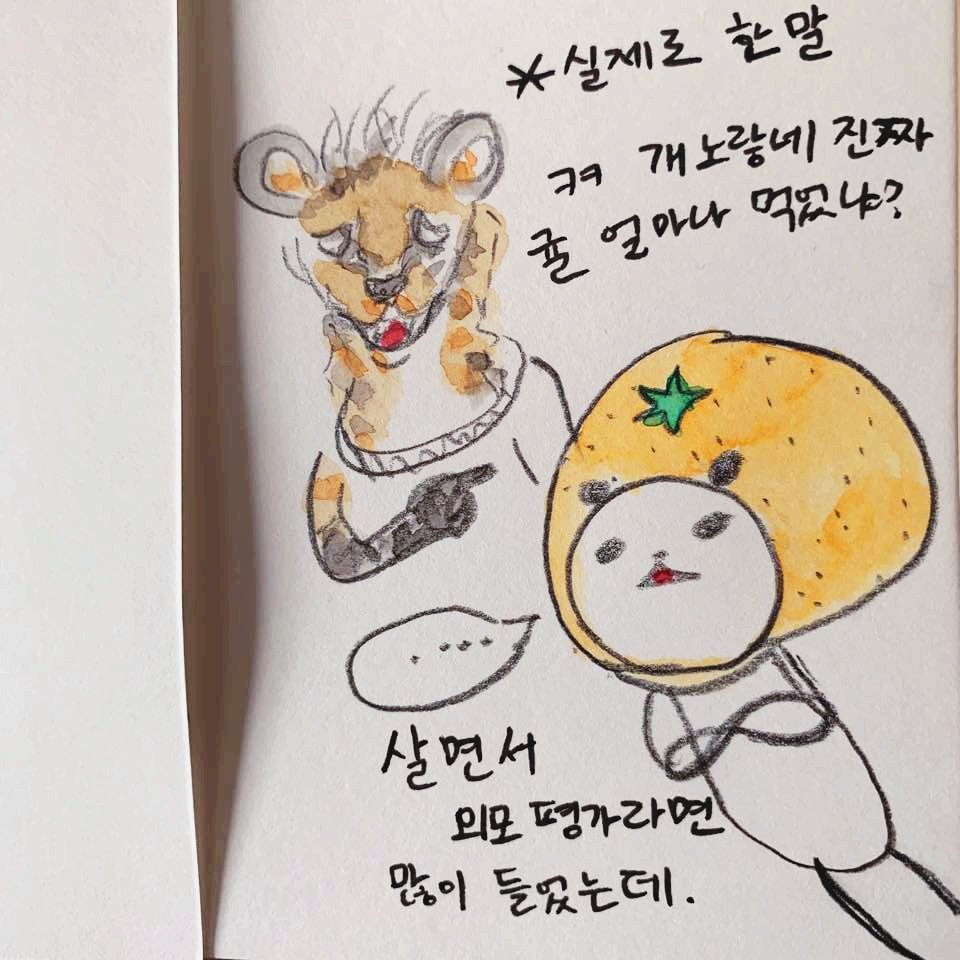 *실제로 한 말
ㅋㅋ 개노랗네 진짜
귤 얼마나 먹었냐?
.....
살면서
외모 평가라면
많이 들었는데.